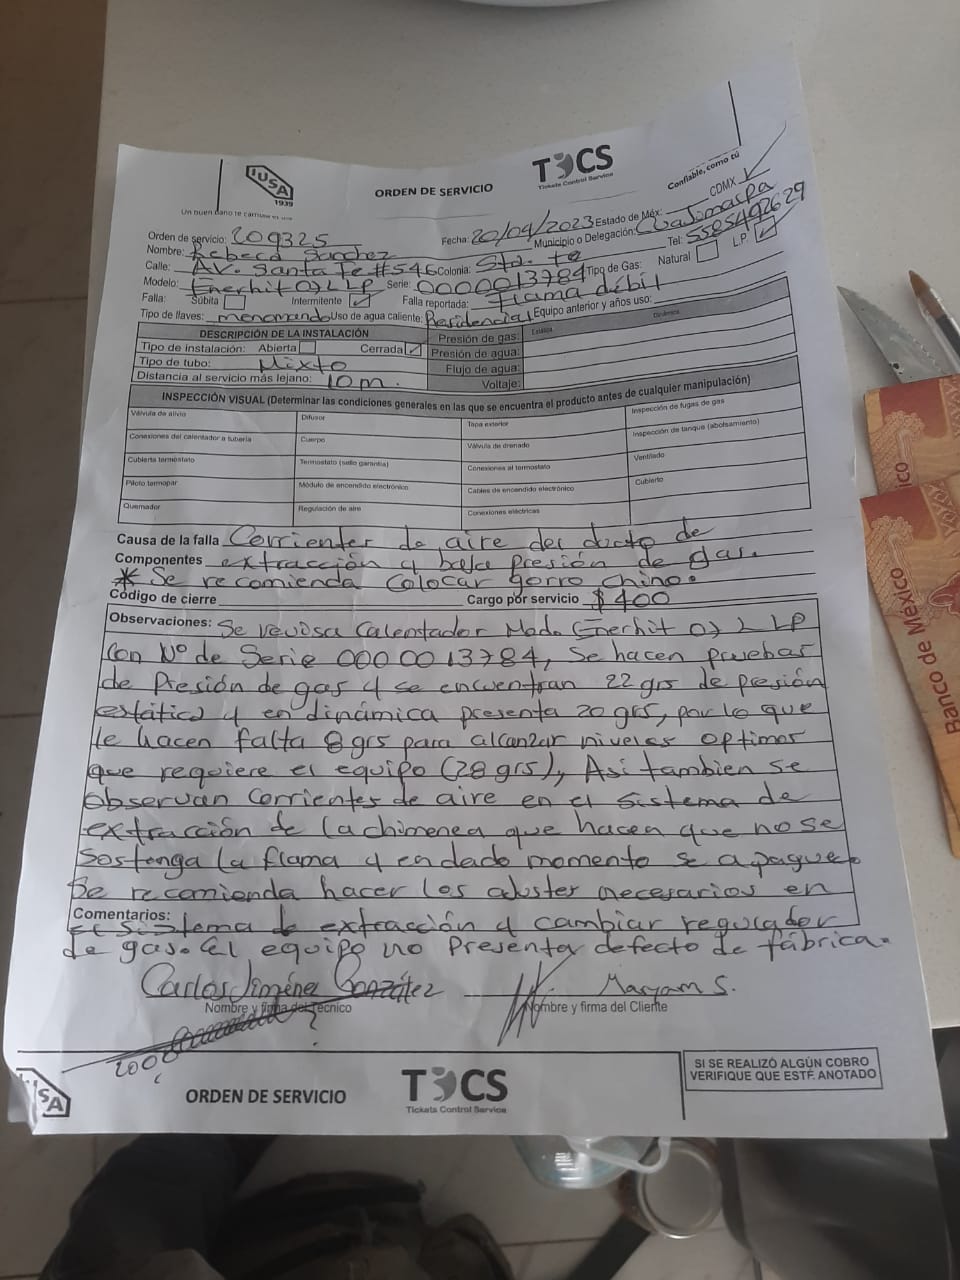 IUSA
1939
ORDEN DE SERVICIO
TCS
Tickets Control Service
Confiable, como tú
Orden de servicio: 209325
Fecha: 20/04/2023 Estado de Méx: CDMX ✓
Nombre: Rebeca Sanchez Municipio o Delegación: Cuajimalpa
Calle: AV. Santa Fe #546 Colonia: Sta. fe Tel: 5585492629
Modelo: Enerhit 07 L LP Serie: 0000013784 Tipo de Gas: Natural L.P. ✓
Falla: Súbita Intermitente ✓ Falla reportada: Flama débil
Tipo de llaves: monomando Uso de agua caliente: Residencial Equipo anterior y años uso:
DESCRIPCIÓN DE LA INSTALACIÓN Presión de gas: Estática Dinámica
Tipo de instalación: Abierta Cerrada ✓ Presión de agua:
Tipo de tubo: Mixto Flujo de agua:
Distancia al servicio más lejano: 10 m. Voltaje:
INSPECCIÓN VISUAL (Determinar las condiciones generales en las que se encuentra el producto antes de cualquier manipulación)
Válvula de alivio Difusor Tapa exterior Inspección de fugas de gas
Conexiones del calentador a tubería Cuerpo Válvula de drenado Inspección de tanque (abolsamiento)
Cubierta termostato Termostato (sello garantía) Conexiones al termostato Ventilado
Piloto termopar Módulo de encendido electrónico Cables de encendido electrónico Cubierto
Quemador Regulación de aire Conexiones eléctricas
Causa de la falla Corrientes de aire del ducto de
Componentes extracción y baja presión de gas.
* Se recomienda colocar gorro chino.
Código de cierre Cargo por servicio $400
Observaciones: Se revisa Calentador Mod. Enerhit 07 L LP
Con N° de Serie 0000013784, Se hacen pruebas
de Presión de gas y se encuentran 22 grs de presión
estática y en dinámica presenta 20 grs, por lo que
le hacen falta 8 grs para alcanzar niveles optimos
que requiere el equipo (28 grs), Asi tambien se
observan Corrientes de aire en el sistema de
extracción de la chimenea que hacen que no se
Sostenga la flama y en dado momento se apague.
Se recomienda hacer los ajustes necesarios en
Comentarios: el sistema de extracción y cambiar regulador
de gas. El equipo no presenta defecto de fábrica.
Carlos Jiménez González Maryam S.
Nombre y firma del Técnico Nombre y firma del Cliente
SI SE REALIZÓ ALGÚN COBRO
VERIFIQUE QUE ESTÉ ANOTADO
SA
ORDEN DE SERVICIO
TCS
Tickets Control Service
Banco de México
ico